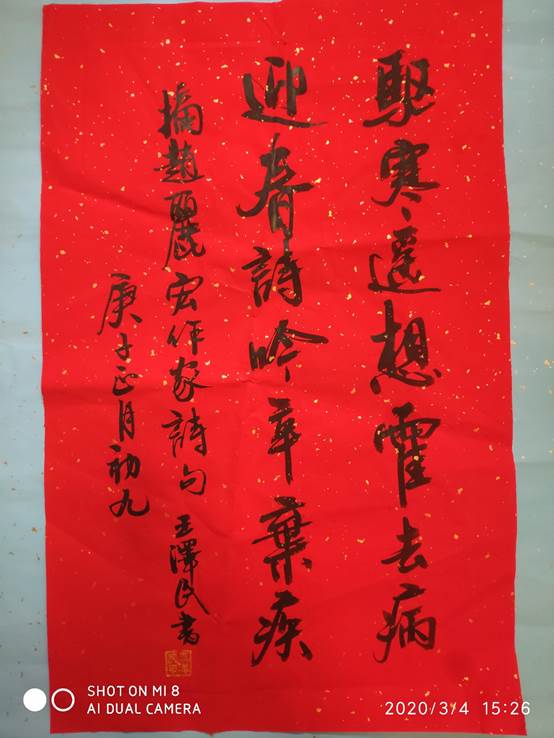 駆寒遥想霍去病
迎春詩吟辛棄疾
摘趙麗宏作家詩句 王澤民書
庚子正月初九
SHOT ON MI 8
AI DUAL CAMERA
2020/3/4 15:26